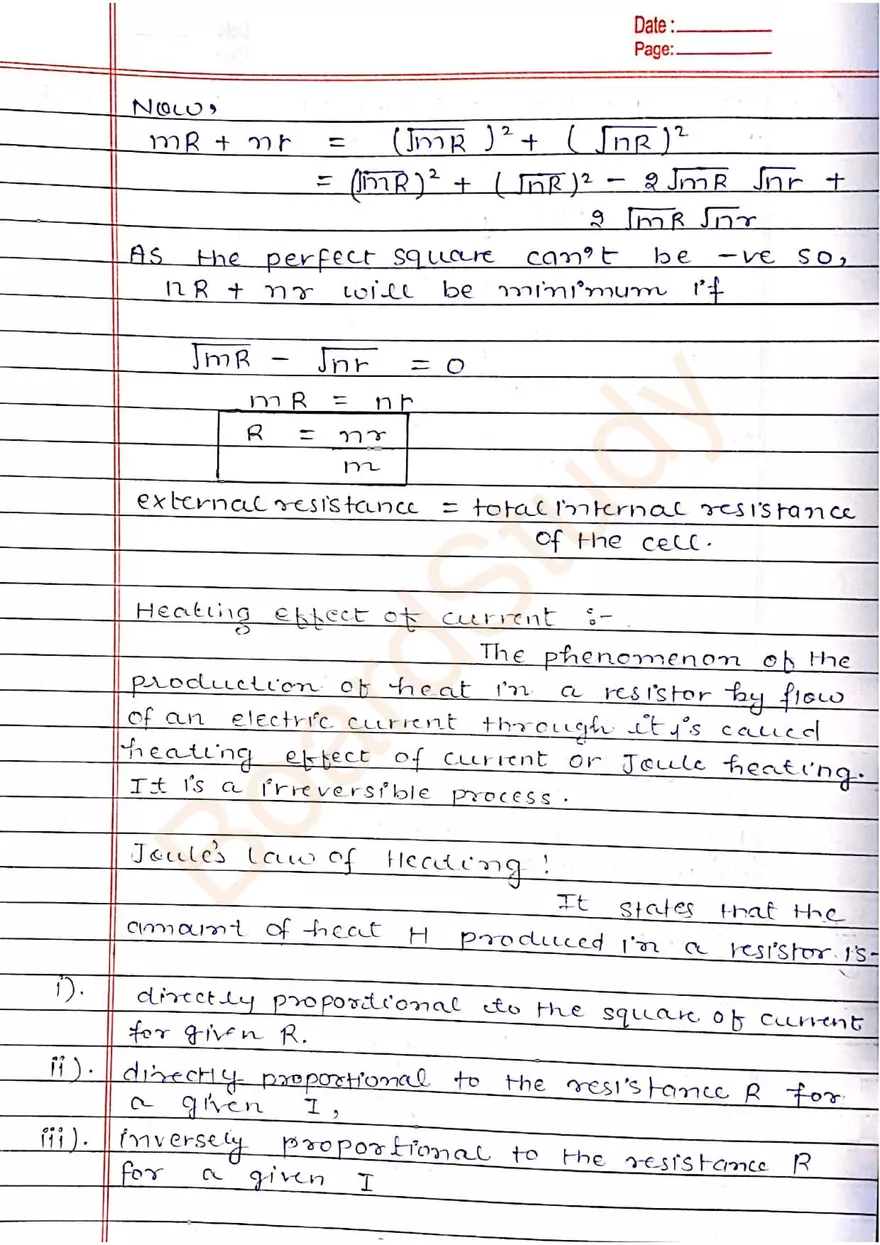 Date :
Page:
Now,
mR + nr = (√mR)² + (√nR)²
= (√mR)² + (√nR)² - 2 √mR √nr +
2 √mR √nr
As the perfect square can't be -ve so,
nR + nr will be minimum if
√mR - √nr = 0
mR = nr
R = nr
m
external resistance = total internal resistance
of the cell.
Heating effect of current :-
The phenomenon of the
production of heat in a resistor by flow
of an electric current through it is called
heating effect of current or Joule heating.
It is a irreversible process.
Joule's law of Heating !
It states that the
amount of heat H produced in a resistor is-
i). directly proportional to the square of current
for given R.
ii). directly proportional to the resistance R for
a given I,
iii). inversely proportional to the resistance R
for a given I
BoardStudy